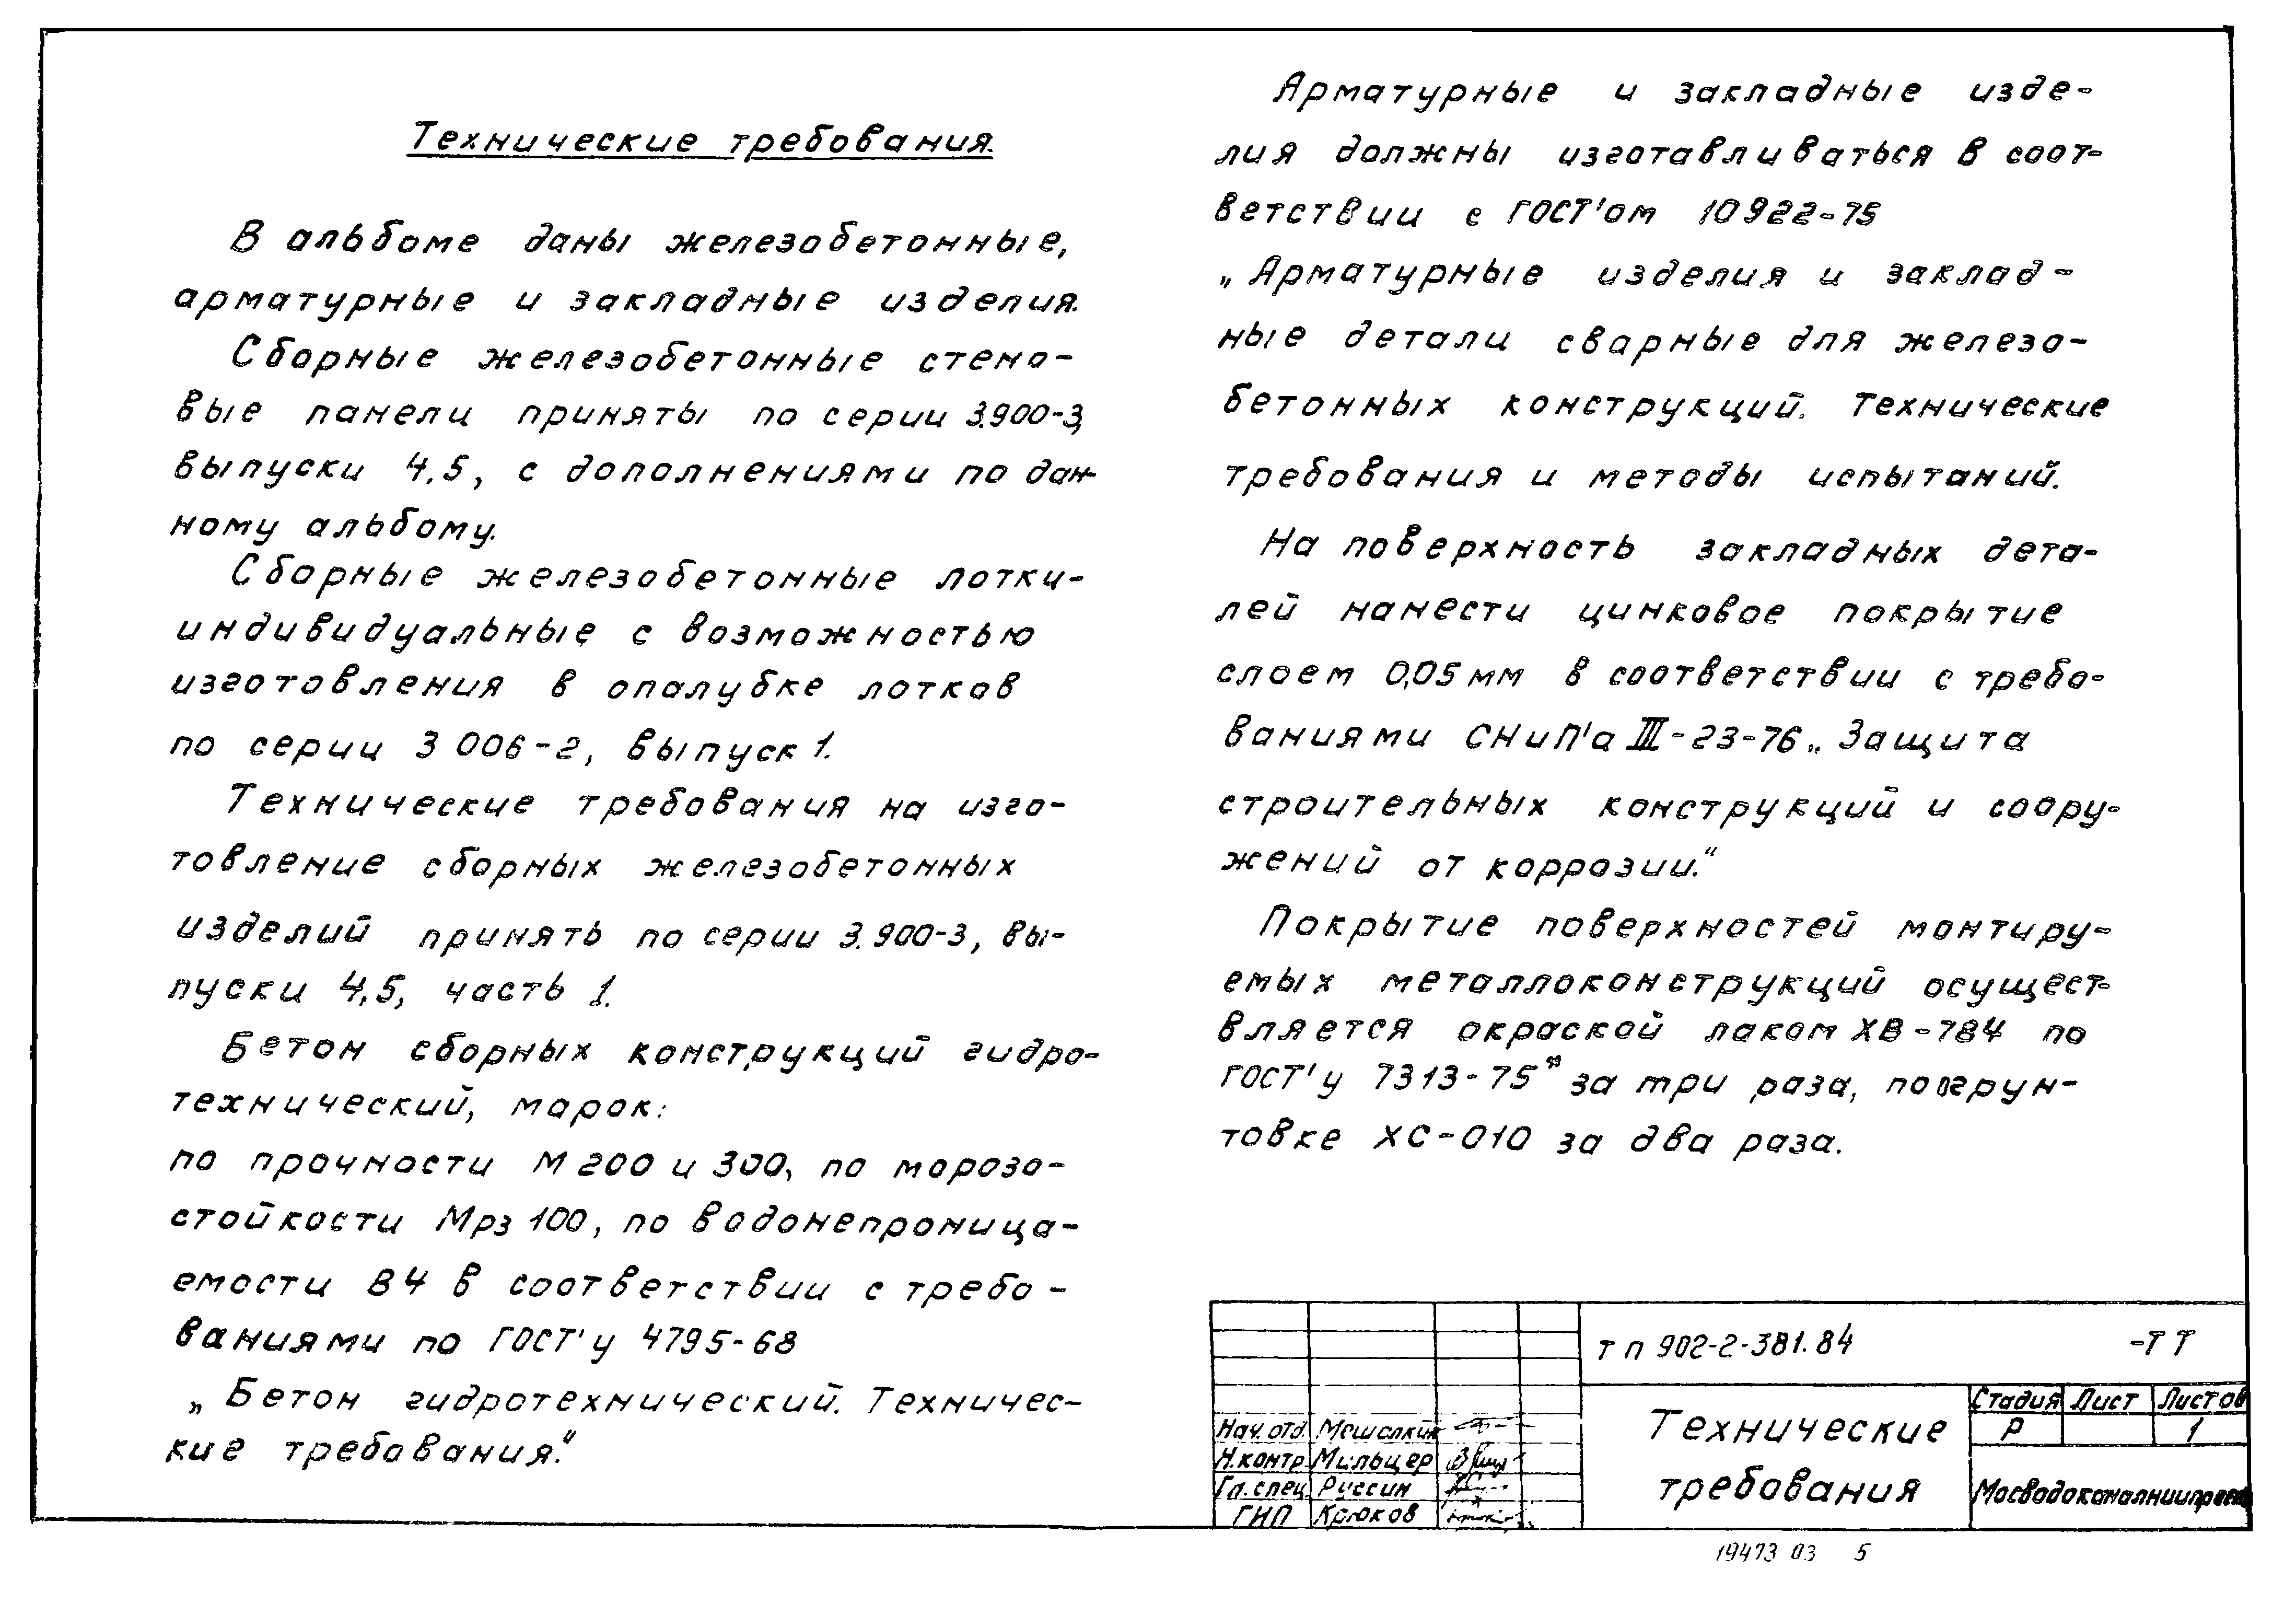 Технические требования.
В альбоме даны железобетонные,
арматурные и закладные изделия.
Сборные железобетонные стено-
вые панели приняты по серии 3.900-3,
выпуски 4.5, с дополнениями по дан-
ному альбому.
Сборные железобетонные лотки-
индивидуальные с возможностью
изготовления в опалубке лотков
по серии 3 006-2, выпуск 1.
Технические требования на изго-
товление сборных железобетонных
изделий принять по серии 3.900-3, вы-
пуски 4,5, часть 1.
Бетон сборных конструкций гидро-
технический, марок:
по прочности М 200 и 300, по морозо-
стойкости Мрз 100, по водонепроница-
емости В4 в соответствии с требо-
ваниями по ГОСТ'у 4795-68
„Бетон гидротехнический. Техничес-
кие требования."
Арматурные и закладные изде-
лия должны изготавливаться в соот-
ветствии с ГОСТ'ом 10922-75
„Арматурные изделия и заклад-
ные детали сварные для железо-
бетонных конструкций. Технические
требования и методы испытаний.
На поверхность закладных дета-
лей нанести цинковое покрытие
слоем 0,05 мм в соответствии с требо-
ваниями СНиП'а III-23-76 „Защита
строительных конструкций и соору-
жений от коррозии."
Покрытие поверхностей монтиру-
емых металлоконструкций осущест-
вляется окраской лаком ХВ-784 по
ГОСТ'у 7313-75* за три раза, по огрун-
товке ХС-010 за два раза.
тп 902-2-381.84 -ТТ
Технические
требования
Стадия Лист Листов
Р 1
Мосводоканалниипроект
Нач. отд. Мешалкин
Н.контр. Мильцер
Гл. спец. Руссин
ГИП Крюков
19473 03 5